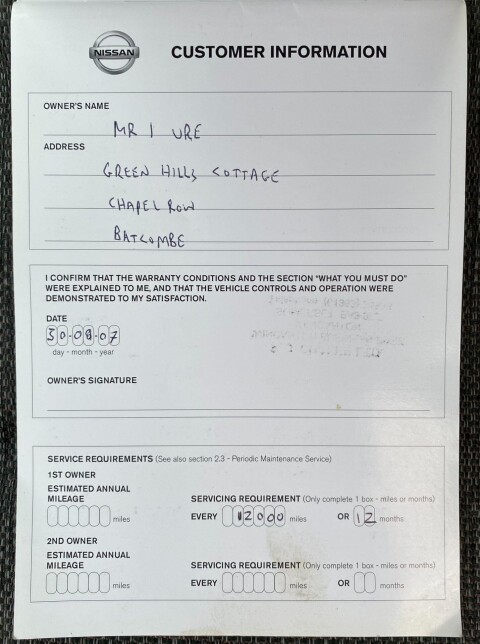 NISSAN
CUSTOMER INFORMATION
OWNER'S NAME
MR I URE
ADDRESS
GREEN HILLS COTTAGE
CHAPEL ROW
BATCOMBE
I CONFIRM THAT THE WARRANTY CONDITIONS AND THE SECTION "WHAT YOU MUST DO"
WERE EXPLAINED TO ME, AND THAT THE VEHICLE CONTROLS AND OPERATION WERE
DEMONSTRATED TO MY SATISFACTION.
DATE
30-08-07
day - month - year
OWNER'S SIGNATURE
SERVICE REQUIREMENTS (See also section 2.3 - Periodic Maintenance Service)
1ST OWNER
ESTIMATED ANNUAL
MILEAGE SERVICING REQUIREMENT (Only complete 1 box - miles or months)
miles EVERY 12000 miles OR 12 months
2ND OWNER
ESTIMATED ANNUAL
MILEAGE SERVICING REQUIREMENT (Only complete 1 box - miles or months)
miles EVERY miles OR months